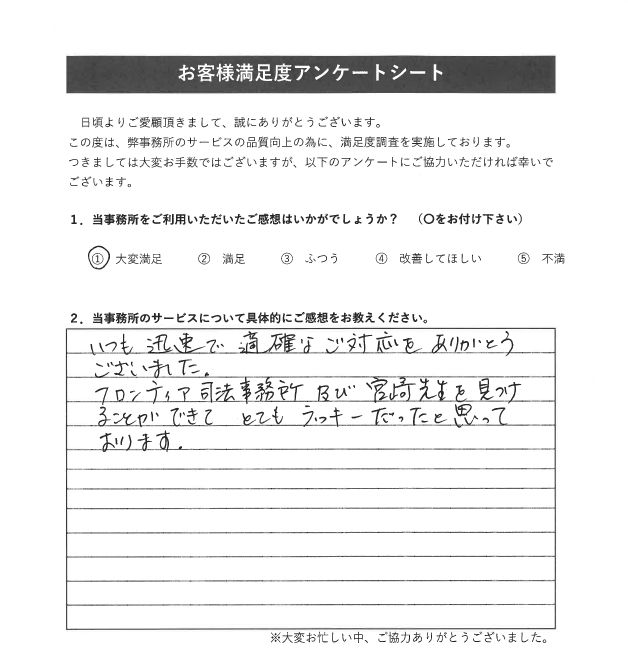 お客様満足度アンケートシート
日頃よりご愛顧頂きまして、誠にありがとうございます。
この度は、弊事務所のサービスの品質向上の為に、満足度調査を実施しております。
つきましては大変お手数ではございますが、以下のアンケートにご協力いただければ幸いで
ございます。
1．当事務所をご利用いただいたご感想はいかがでしょうか？　（〇をお付け下さい）
① 大変満足　② 満足　③ ふつう　④ 改善してほしい　⑤ 不満
2．当事務所のサービスについて具体的にご感想をお教えください。
いつも 迅速で 適確な ご対応を ありがとう
ございました。
フロンティア司法事務所 及び 宮崎先生を見つけ
ることができて とても ラッキーだったと思って
おります。
※大変お忙しい中、ご協力ありがとうございました。